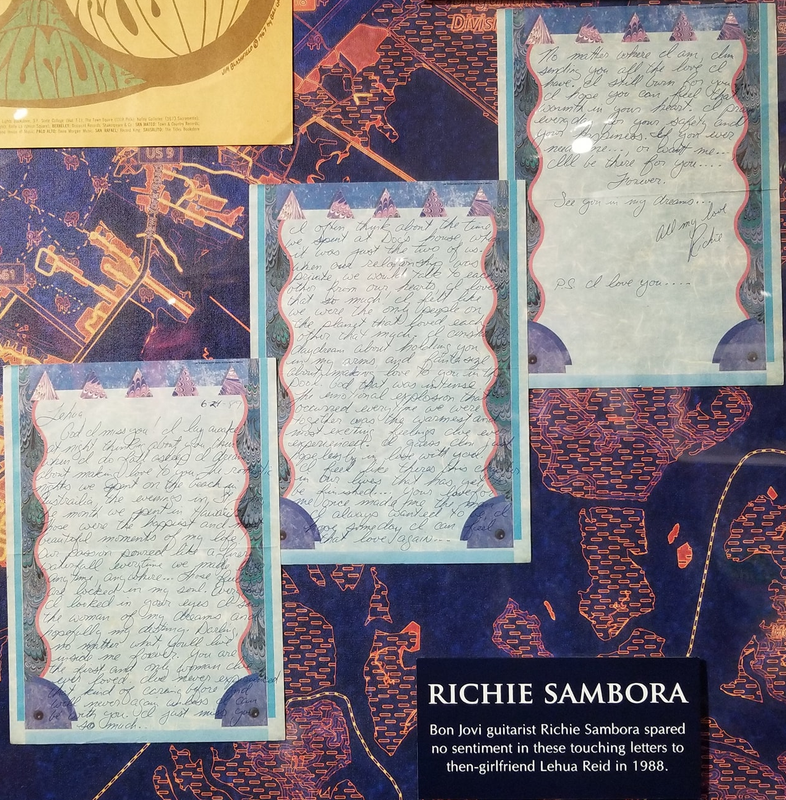 THE
FILLMORE
Divisi
US 9
61
Lehua,
6-21-8
God I miss you! I lay awake
at night thinking about you, then
when I do fall asleep I dream
about making love to you. The
we spent on the beach in
Australia, the evenings in
month we spent in Hawaii
those were the happiest and
beautiful moments of my life.
Our passion poured like a
waterfall everytime we made
anytime, anywhere... Those
are locked in my soul. Every
I looked in your eyes I
the woman of my dreams and
hopefully my destiny. Darling,
no matter what you'll
inside me forever. You are
the first and only woman I've
ever loved. I've never experienced
that kind of caring before and
will never again unless I can
be with you. I'd just miss you
so much..
I often think about the time
we spent at Doc's house, when
it was just the two of us
when our relationship was
private, we would talk to each
other from our hearts. I loved
that so much. I felt like
we were the only people on
the planet that loved each
other that much. I always
daydream about holding you
in my arms and fantasize
about making love to you
God that was intense
The emotional explosion that
occurred everytime we were
together was the warmest and
most exciting feelings I've ever
experienced. I guess I'm just
hopelessly in love with you.
I feel like there's this chapter
in our lives that has yet to
be finished... Your love
me once made me the man
I always wanted to
hope someday I can feel
that love again...
No matter where I am, I'm
sending you all the love I
have. I still burn for you
hope you can feel that
warmth in your heart. I pray
everyday for your safety and
your happiness. If you ever
need me..., or want me...
I'll be there for you....
Forever.
See you in my dreams...
All my love
Richie
P.S. I love you....
RICHIE SAMBORA
Bon Jovi guitarist Richie Sambora spared
no sentiment in these touching letters to
then-girlfriend Lehua Reid in 1988.